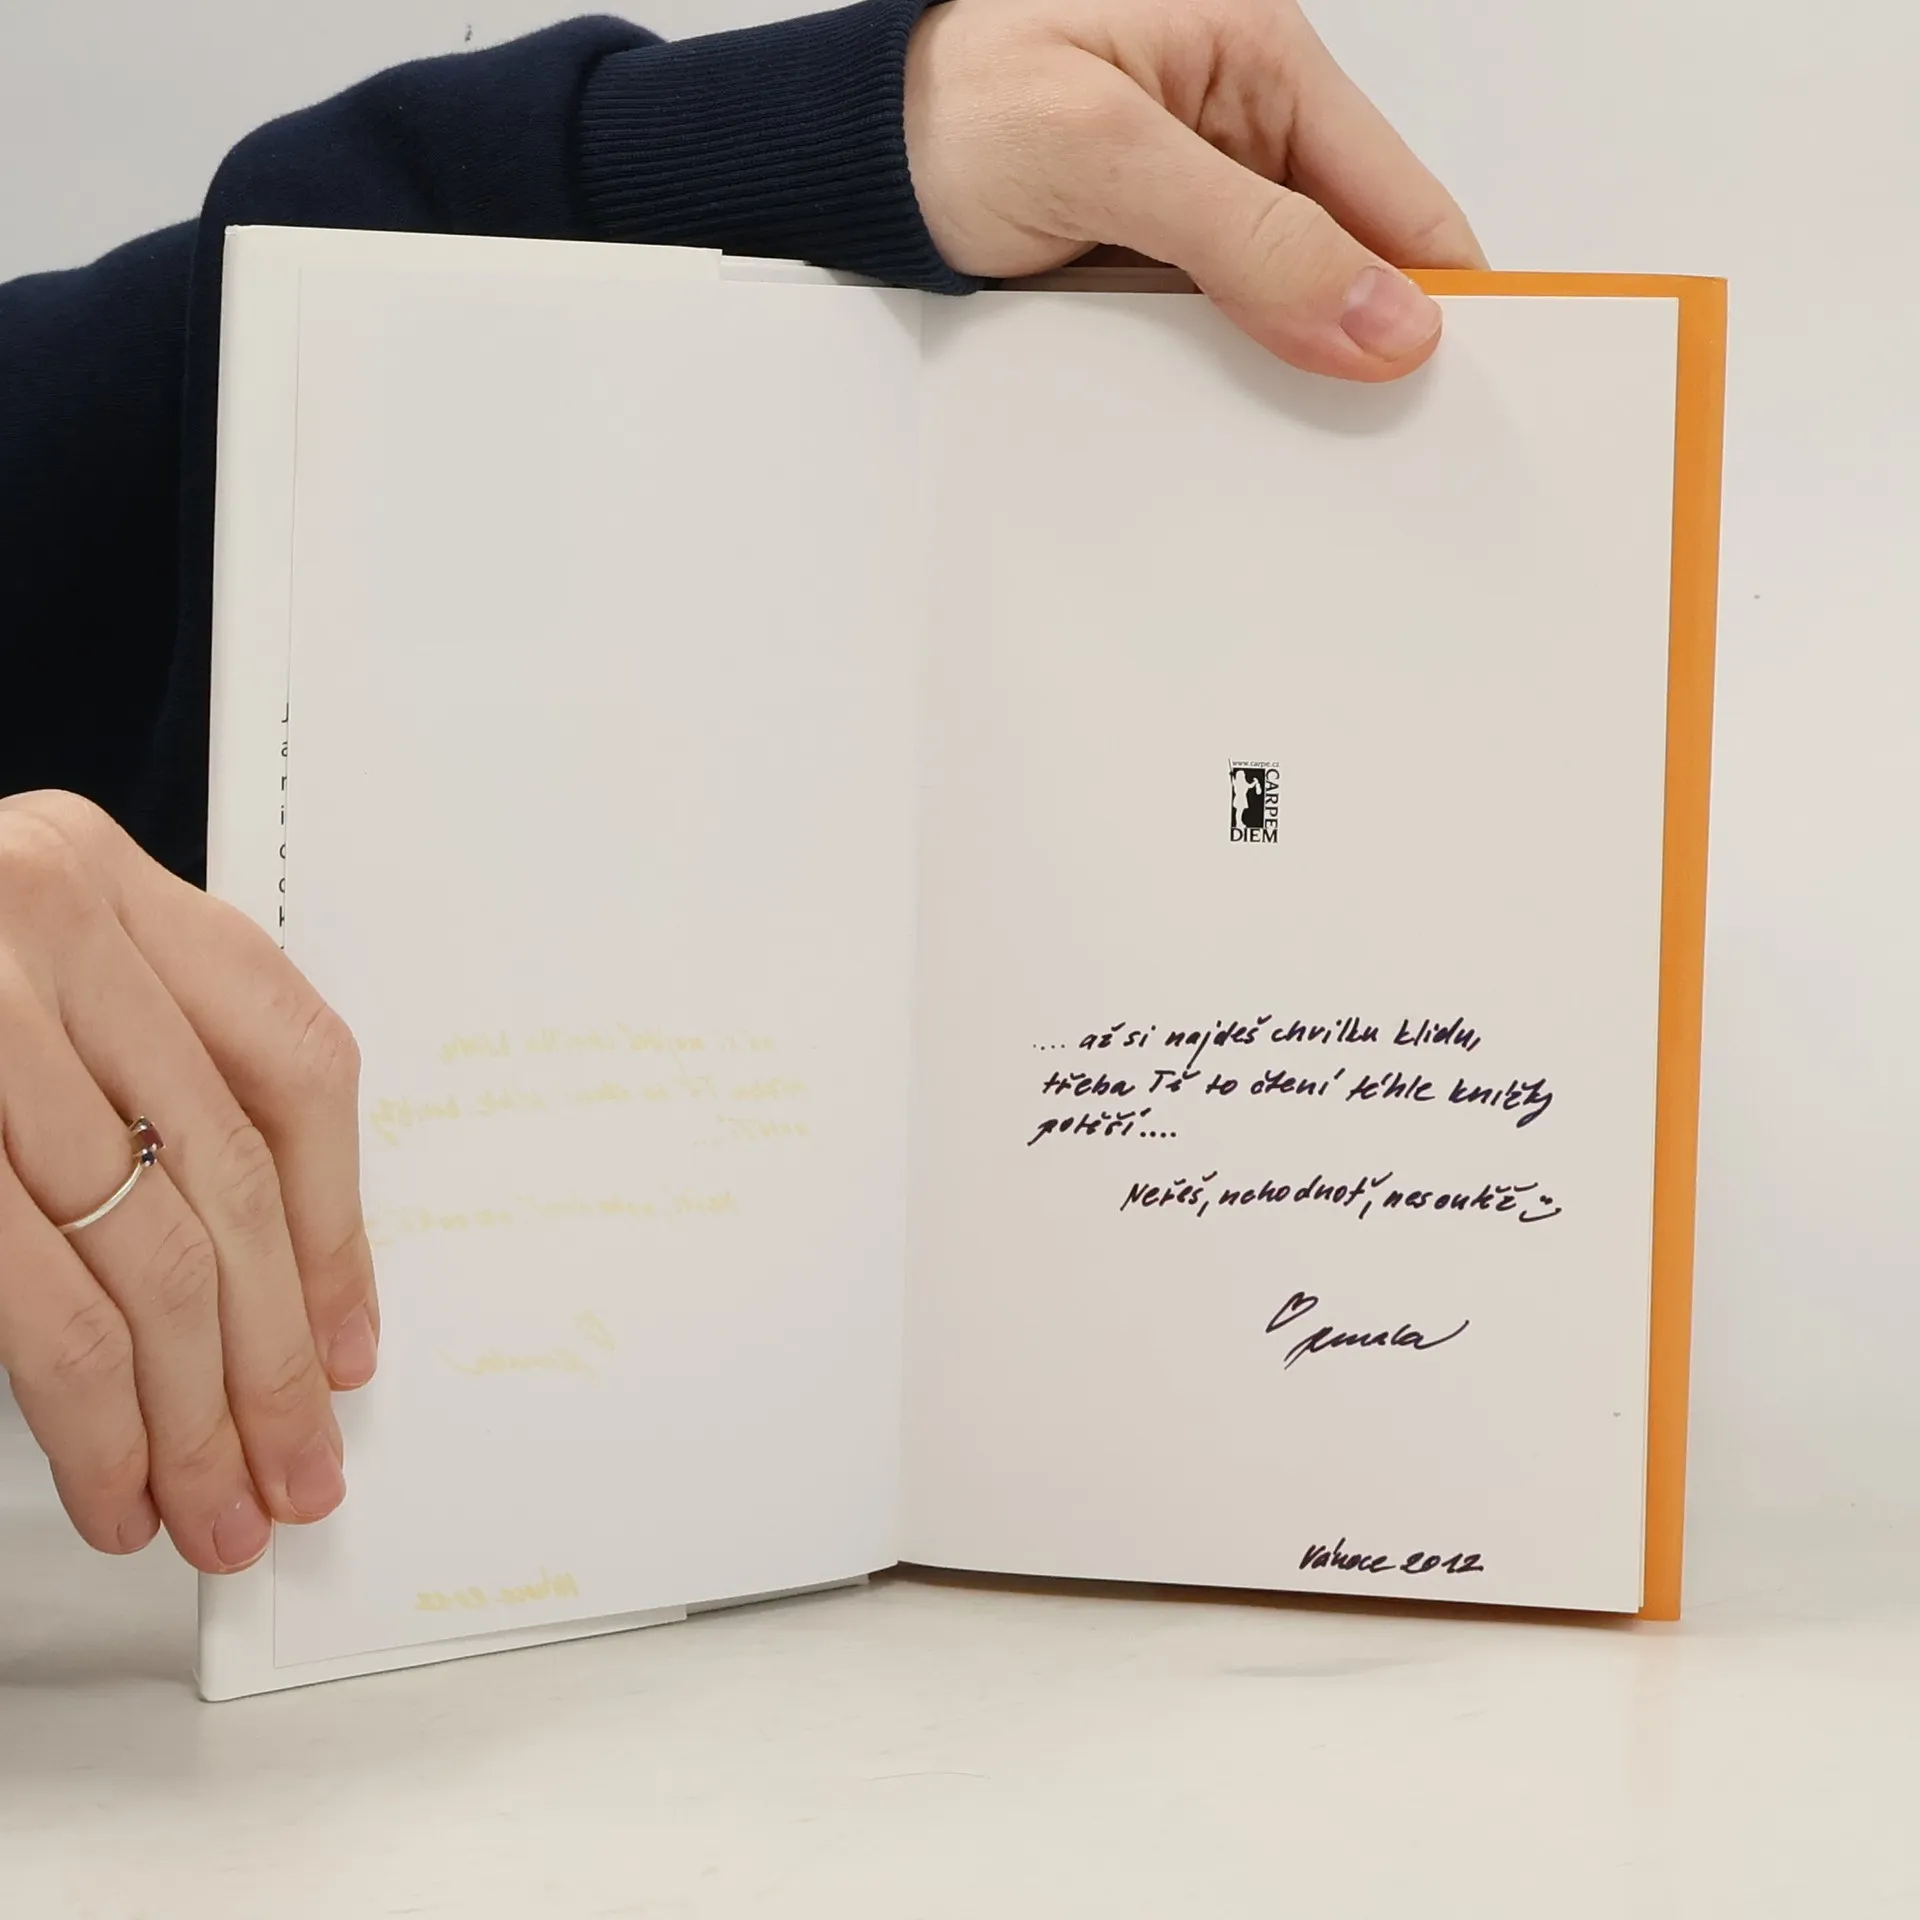 J
a
r
i
c
c
k
www.carpe.cz
CARPE
DIEM
.... až si najdeš chvilku klidu,
třeba Tě to čtení téhle knížky
potěší....
Neřeš, nehodnoť, nesoutěž
Renata
Vánoce 2012